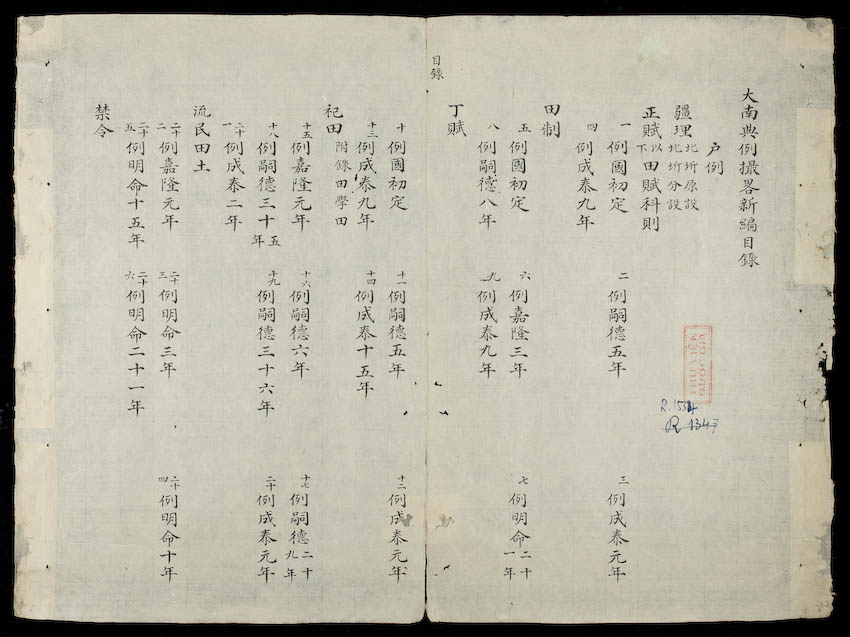 大南典例撮畧新編目錄
户例
疆理 北圻原設 北圻分設
正賦以下田賦科則
一 例國初定 二 例嗣德五年 三 例成泰元年
四 例成泰九年
田制
五 例國初定 六 例嘉隆三年 七 例明命二十一年
八 例嗣德八年 九 例成泰九年
丁賦
目錄
十 例國初定 十一 例嗣德五年 十二 例成泰元年
十三 例成泰九年 十四 例成泰十五年
祀田 附錄田學田
十五 例嘉隆元年 十六 例嗣德六年 十七 例嗣德二十九年
十八 例嗣德三十五年 十九 例嗣德三十六年 二十 例成泰元年
二十一 例成泰二年
流民田土
二十二 例嘉隆元年 二十三 例明命三年 二十四 例明命十年
二十五 例明命十五年 二十六 例明命二十一年
禁令
THƯ VIỆN
QUỐC GIA
R.1554
R 1347